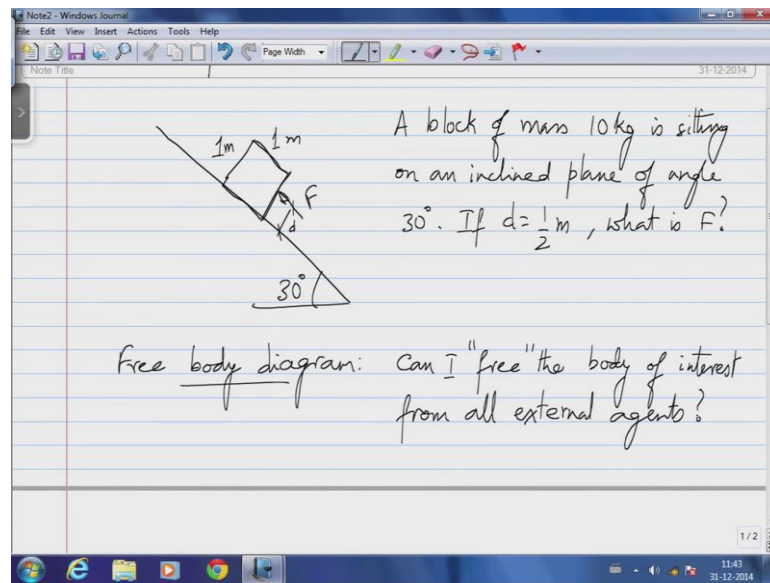 Note2 - Windows Journal
File Edit View Insert Actions Tools Help
Page Width
Note Title
31-12-2014
1m
1m
F
d
30°
A block of mass 10kg is sitting
on an inclined plane of angle
30°. If d = 1/2 m, what is F?
Free body diagram: Can I "free" the body of interest
from all external agents?
1 / 2
11:43
31-12-2014